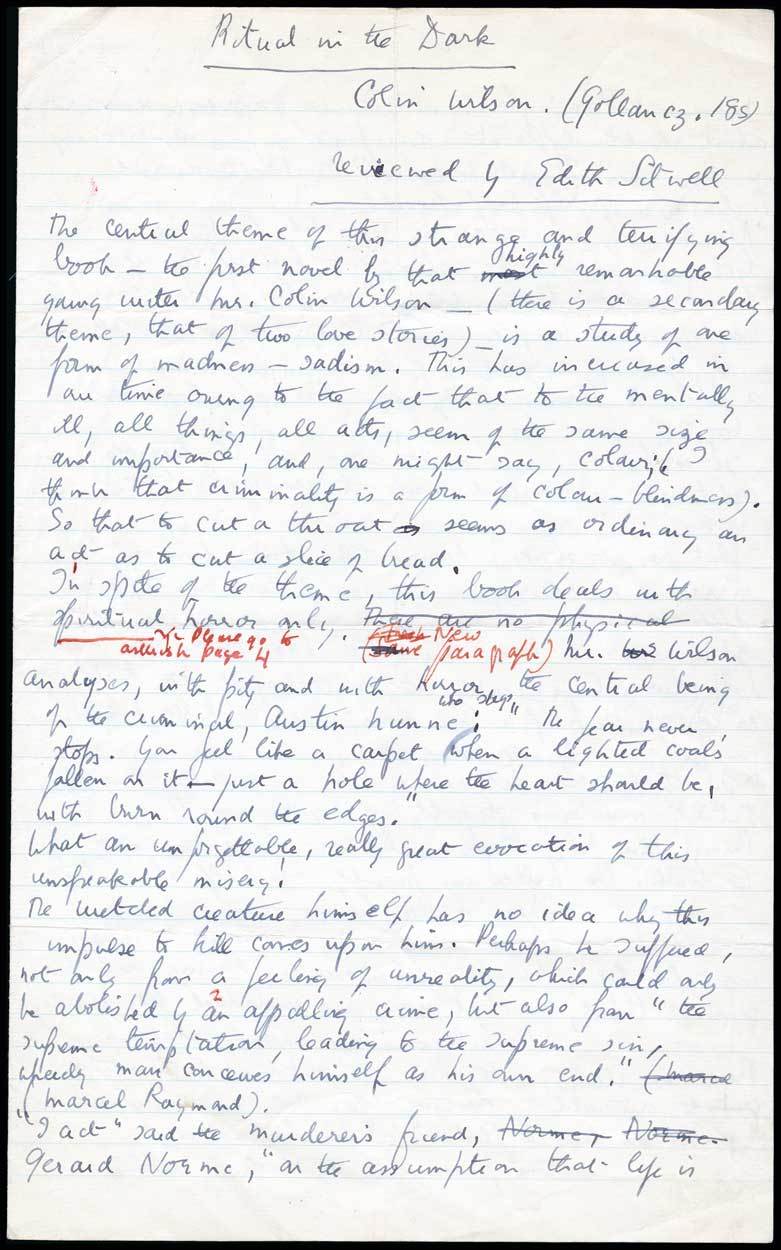 Ritual in the Dark
Colin Wilson. (Gollancz. 18s)
reviewed by Edith Sitwell
The central theme of this strange and terrifying
highly
book – the first novel by that most remarkable
young writer Mr. Colin Wilson – (there is a secondary
theme, that of two love stories) – is a study of one
form of madness – sadism. This has increased in
our time owing to the fact that to the mentally
ill, all things, all acts, seem of the same size
and importance, and, one might say, colour, (I
think that criminality is a form of colour-blindness).
So that to cut a throat is seems as ordinary an
act as to cut a slice of bread.
In spite of the theme, this book deals with
spiritual horror only. There are no physical
Please go to
asterisk page 4
New
(Same paragraph) Mr. Wilson
analyses, with pity and with horror, the central being
who says
of the criminal, Austin Nunne: "The fear never
stops. You feel like a carpet when a lighted coal's
fallen on it – just a hole where the heart should be,
with burn round the edges."
What an unforgettable, really great evocation of this
unspeakable misery!
The wretched creature himself has no idea why this
impulse to kill comes upon him. Perhaps he suffered,
not only from a feeling of unreality, which could only
be abolished by an appalling crime, but also from "the
supreme temptation, leading to the supreme sin,
whereby man conceives himself as his own end." (Marce
(Marcel Raymond).
"I act" said the murderer's friend, Norme, Norme.
Gerard Norme, "on the assumption that life is